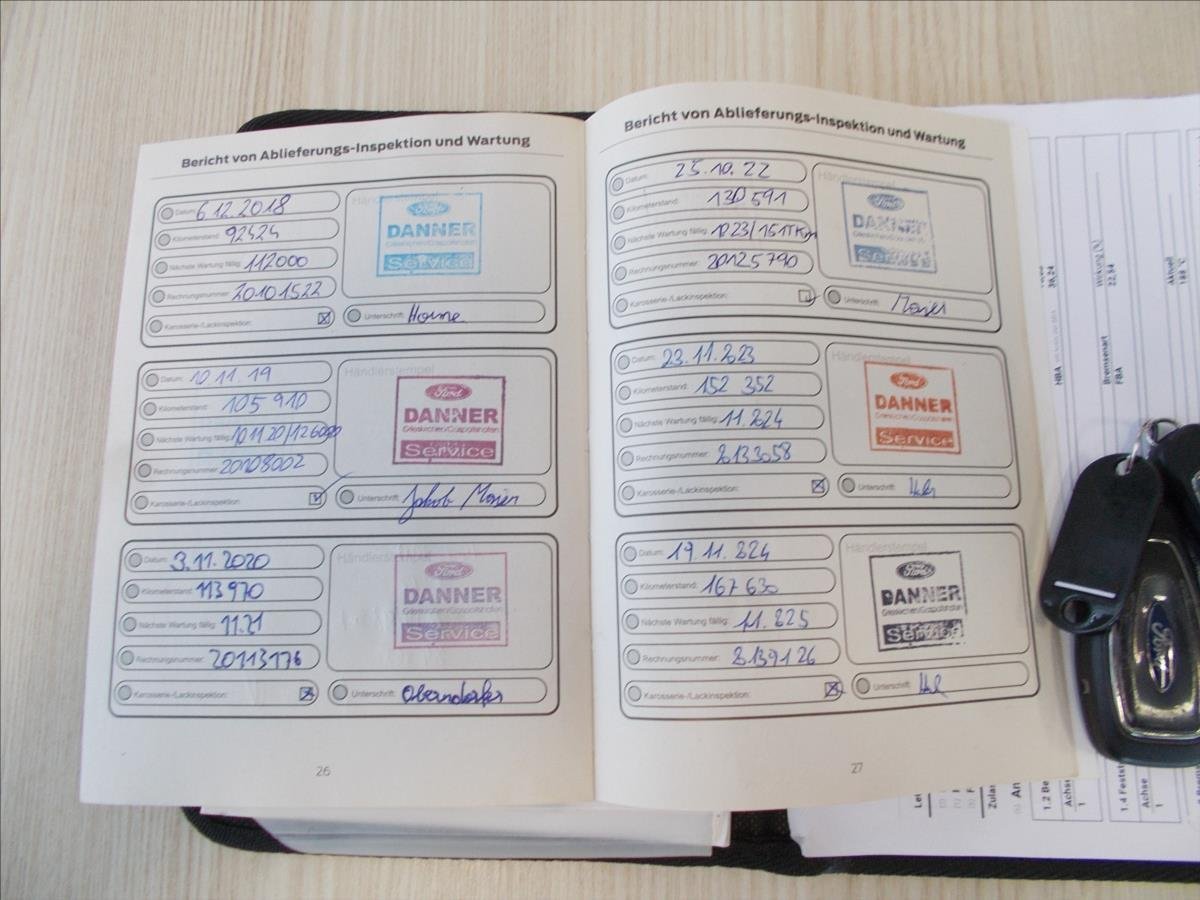 Bericht von Ablieferungs-Inspektion und Wartung
Datum: 6.12.2018
Kilometerstand: 92424
Nächste Wartung fällig: 112000
Rechnungsnummer: 20101522
Karosserie-/Lackinspektion:
Ford
DANNER
Service
Unterschrift:
Datum: 10.11.19
Kilometerstand: 105910
Nächste Wartung fällig: 10.11.20/126000
Rechnungsnummer: 20108002
Karosserie-/Lackinspektion:
Händlerstempel
Ford
DANNER
Grieskirchen/Gaspoltshofen
Service
Unterschrift: Jakob Maier
Datum: 3.11.2020
Kilometerstand: 113970
Nächste Wartung fällig: 11.21
Rechnungsnummer: 20113176
Karosserie-/Lackinspektion:
Händlerstempel
Ford
DANNER
Grieskirchen/Gaspoltshofen
Service
Unterschrift: Oberndorfer
26
Bericht von Ablieferungs-Inspektion und Wartung
Datum: 25.10.22
Kilometerstand: 130591
Nächste Wartung fällig: 1023/151TKm
Rechnungsnummer: 20125790
Karosserie-/Lackinspektion:
Händlerstempel
Ford
DANNER
Service
Unterschrift: Maier
Datum: 23.11.2023
Kilometerstand: 152 352
Nächste Wartung fällig: 11.224
Rechnungsnummer: 2133058
Karosserie-/Lackinspektion:
Händlerstempel
Ford
DANNER
Grieskirchen/Gaspoltshofen
Service
Unterschrift:
Datum: 19.11.224
Kilometerstand: 167 630
Nächste Wartung fällig: 11.225
Rechnungsnummer: 2139126
Karosserie-/Lackinspektion:
Händlerstempel
Ford
DANNER
Grieskirchen/Gaspoltshofen
Service
Unterschrift:
27
HBA
36,24
Bremsenart
FBA
Wirkung [%]
22,54
Aktuell
188 °C
1.2 Be
Achse
1
1.4 Festst
Achse
1
Ford